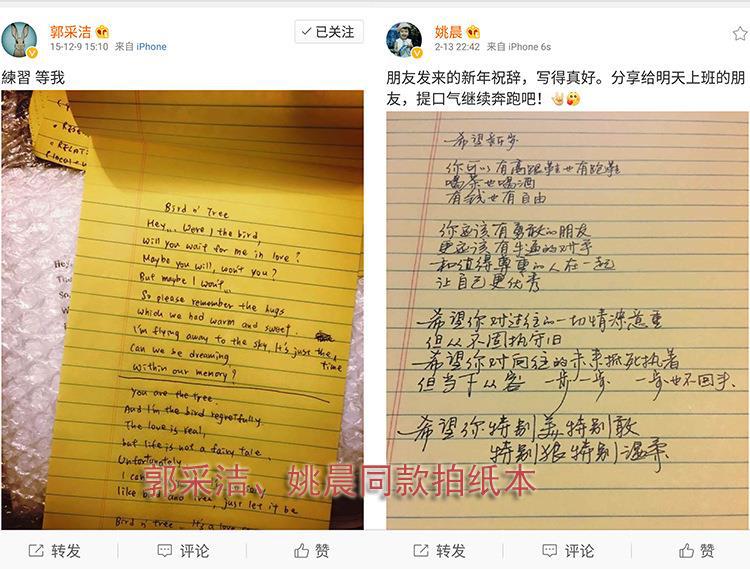 郭采洁
15-12-9 15:10 来自 iPhone
已关注
練習 等我
Bird n' Tree
Hey... Were I the bird,
will you wait for me in love?
Maybe you will, won't you?
But maybe I won't...
So please remember the hugs
which we had warm and sweet.
I'm flying away to the sky, It's just the time
Can we be dreaming
within our memory?
You are the tree.
And I'm the bird regretfully.
The love is real,
but life is not a fairy tale.
Unfortunately
I can
like bird and tree, just let it be
Bird n' tree - It's a love
转发
评论
赞
姚晨
2-13 22:42 来自 iPhone 6s
朋友发来的新年祝辞，写得真好。分享给明天上班的朋
友，提口气继续奔跑吧！
希望新岁
你可以有高跟鞋也有跑鞋
喝茶也喝酒
有钱也有自由
你应该有勇敢的朋友
更应该有牛逼的对手
和值得尊重的人在一起
让自己更优秀
希望你对过往的一切情深意重
但从不固执守旧
希望你对向往的未来抵死执着
但当下从容 一步一步 一步也不回手
希望你特别美特别敢
特别狠特别温柔
转发
评论
赞
郭采洁、姚晨同款拍纸本